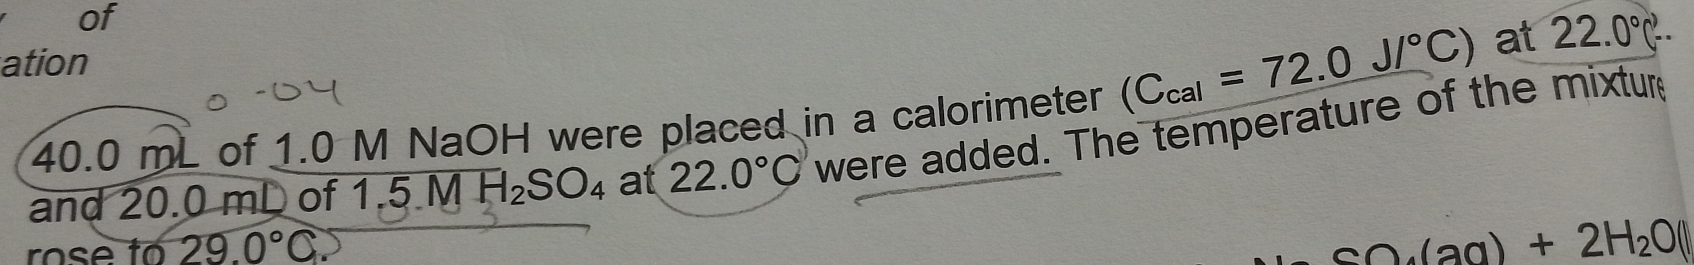 of
ation
0.04
40.0 mL of 1.0 M NaOH were placed in a calorimeter (Ccal = 72.0 J/°C) at 22.0°C.
and 20.0 mL of 1.5 M H₂SO₄ at 22.0°C were added. The temperature of the mixture
rose to 29.0°C.
SO₄(aq) + 2H₂O(l